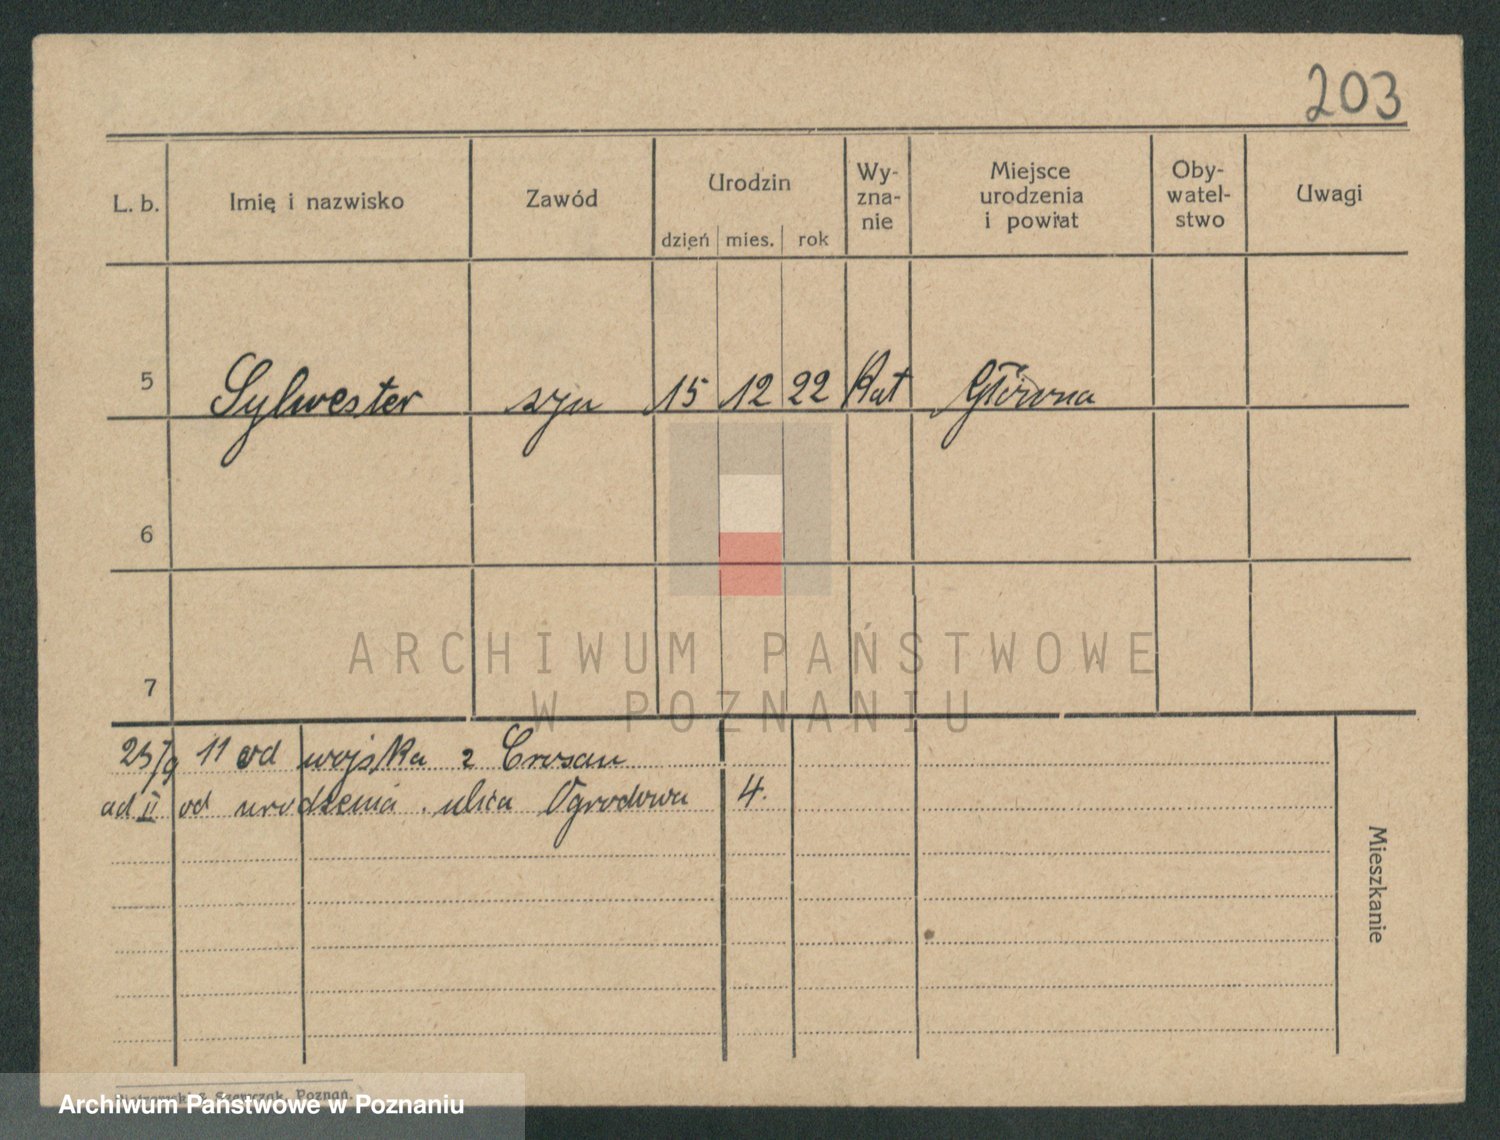 203
L. b.
Imię i nazwisko
Zawód
Urodzin
dzień mies. rok
Wy-
zna-
nie
Miejsce
urodzenia
i powiat
Oby-
watel-
stwo
Uwagi
5 Sylwester syn 15 12 22 Kat Główna
6
7
25/9 11 od wojska z Crosan
ad II od urodzenia . ulica Ogrodowa 4.
Mieszkanie
ARCHIWUM PAŃSTWOWE
W POZNANIU
Szewczak, Poznań.
Archiwum Państwowe w Poznaniu